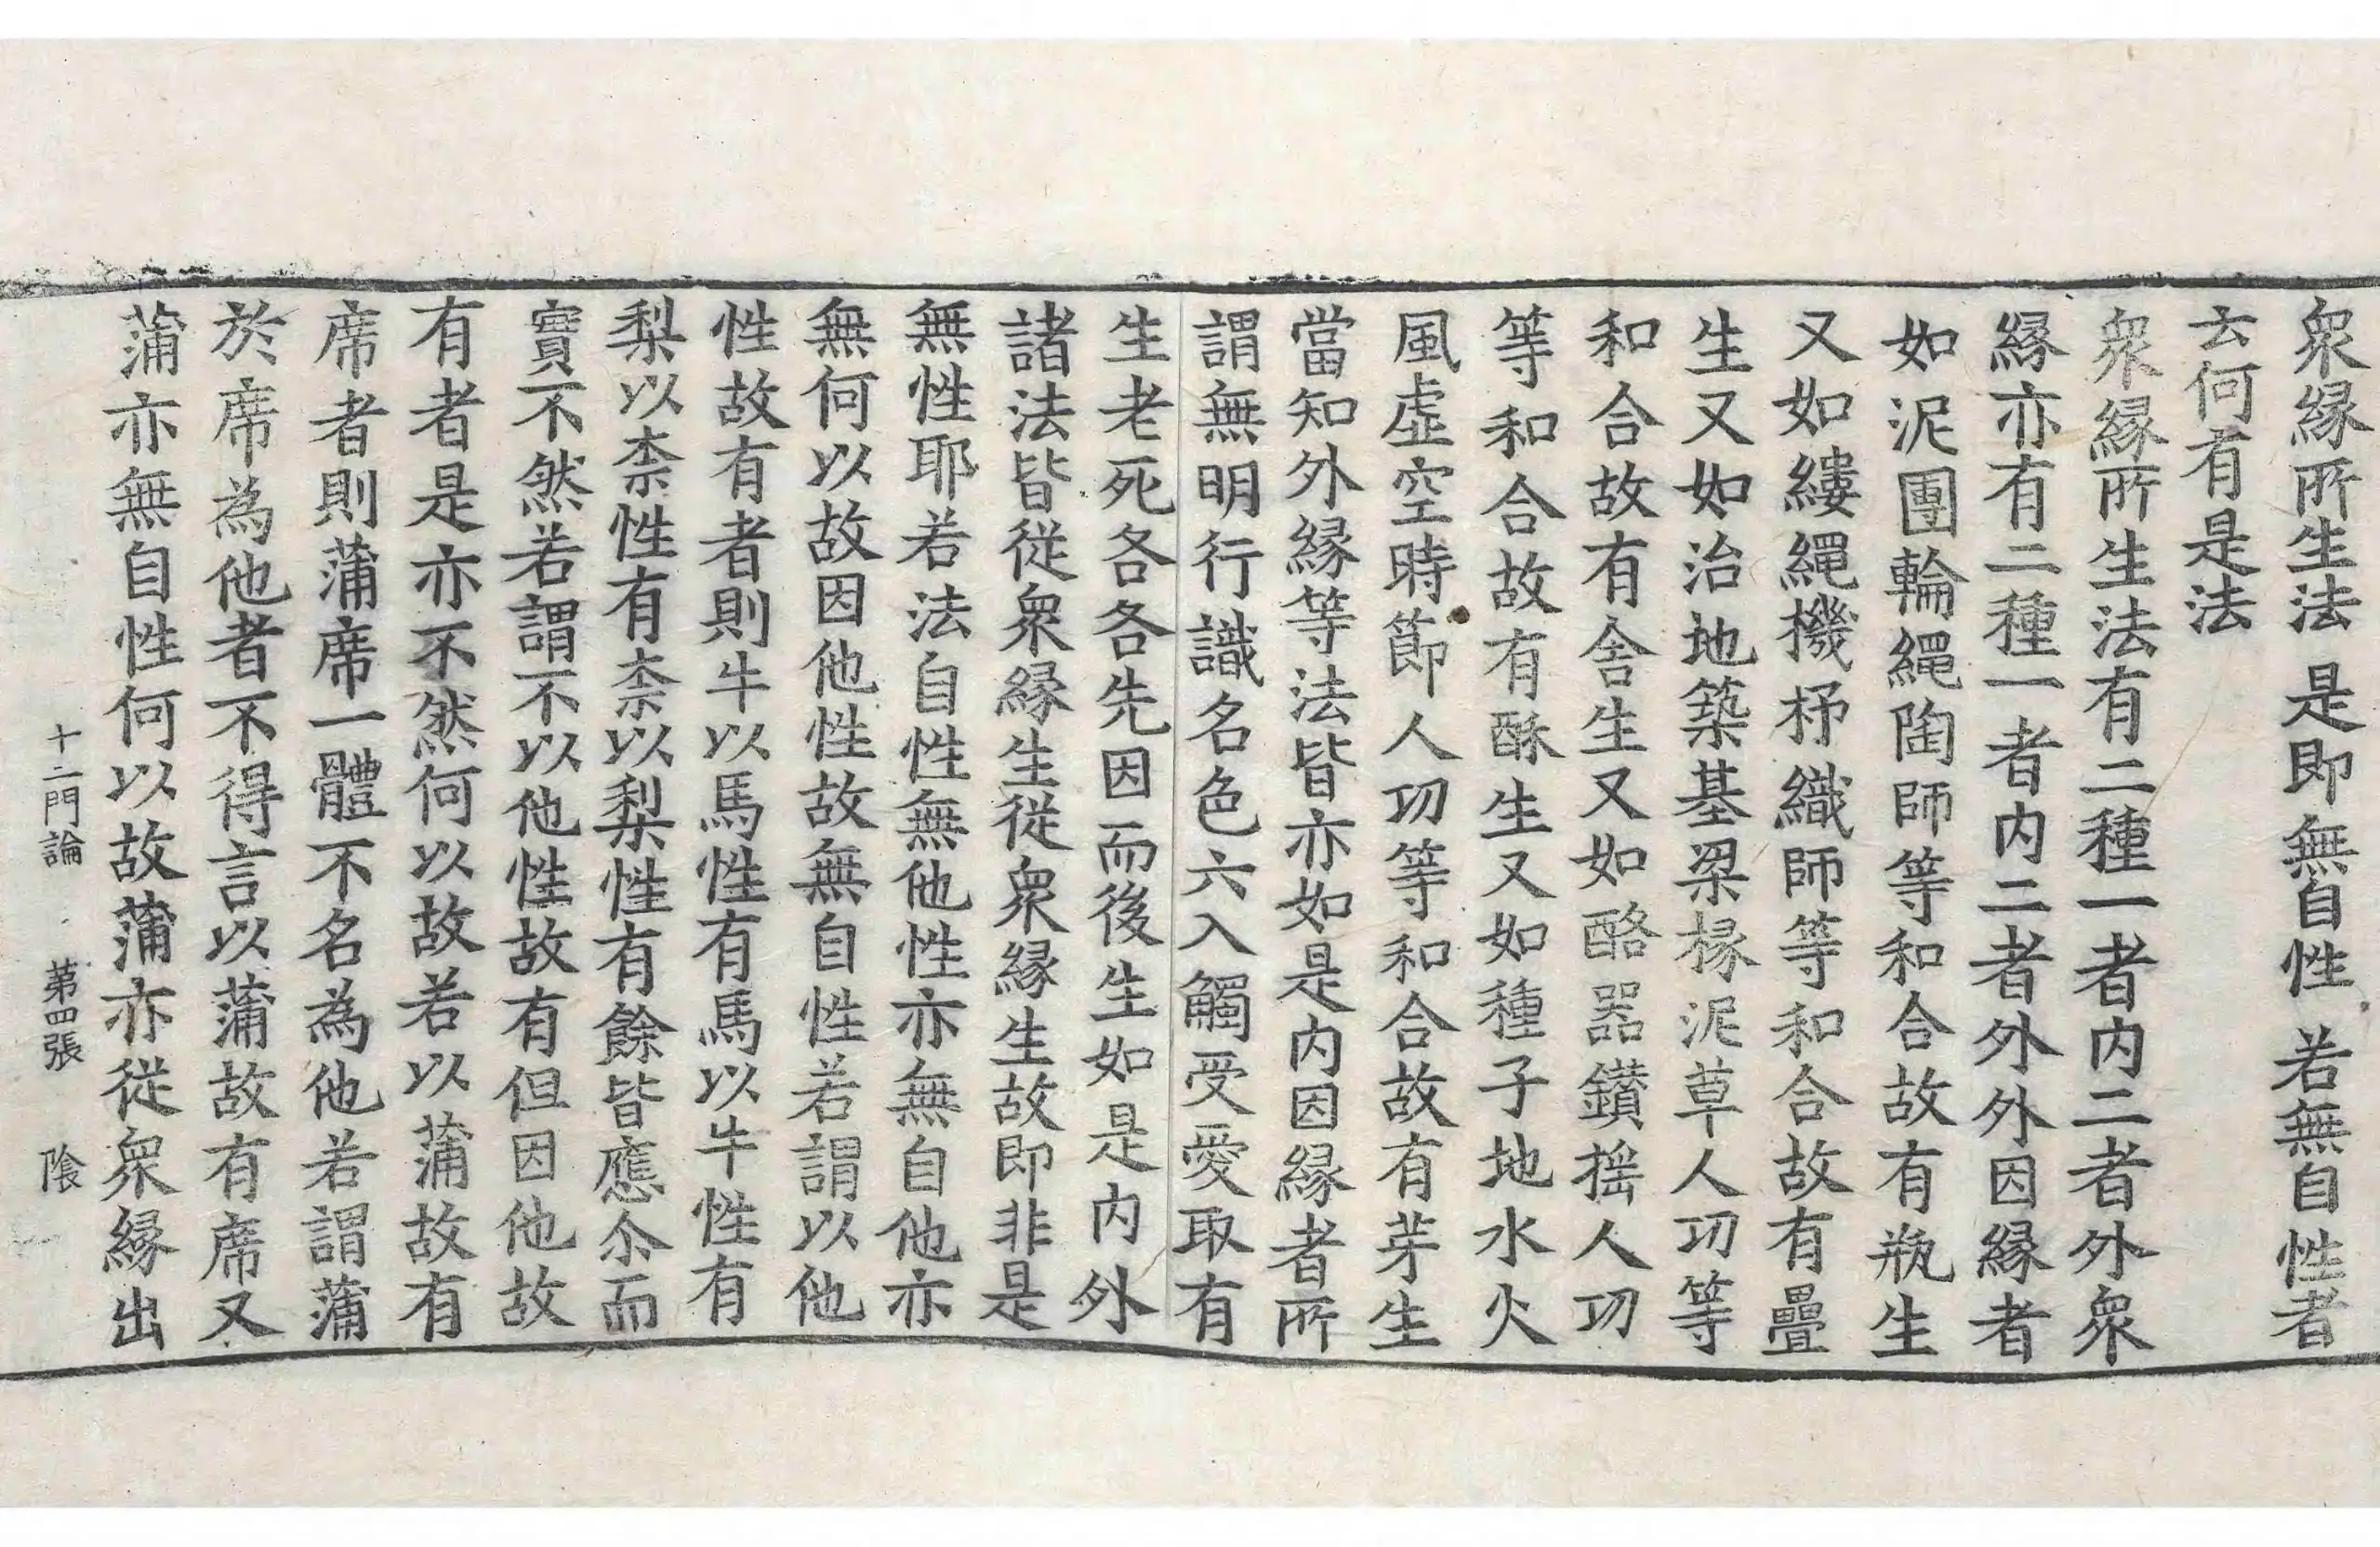 衆縁所生法 是即無自性 若無自性者
云何有是法
衆縁所生法有二種一者内二者外衆
縁亦有二種一者内二者外外因縁者
如泥團輪繩陶師等和合故有瓶生
又如縷繩機杼織師等和合故有疊
生又如治地築基梁椽泥草人功等
和合故有舍生又如酪器鑚揺人功
等和合故有酥生又如種子地水火
風虚空時節人功等和合故有芽生
當知外縁等法皆亦如是内因縁者所
謂無明行識名色六入觸受愛取有
生老死各各先因而後生如是内外
諸法皆從衆縁生從衆縁生故即非是
無性耶若法自性無他性亦無自他亦
無何以故因他性故無自性若謂以他
性故有者則牛以馬性有馬以牛性有
梨以柰性有柰以梨性有餘皆應尒而
實不然若謂不以他性故有但因他故
有者是亦不然何以故若以蒲故有
席者則蒲席一體不名為他若謂蒲
於席為他者不得言以蒲故有席又
蒲亦無自性何以故蒲亦從衆縁出
十二門論 第四張 陰